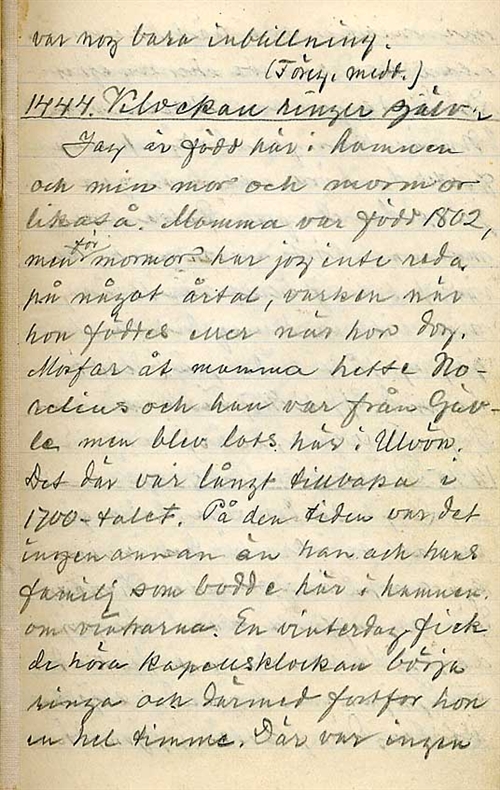 var nog bara inbillning.
(Föreg. medd.)
1444. Klockan ringer själv.
Jag är född här i hamnen
och min mor och mormor
likaså. Mamma var född 1802,
men för mormor har jag inte reda
på något årtal, varken när
hon föddes eller när hon dog.
Morfar åt mamma hette No-
relius och han var från Gäv-
le men blev lots här i Ulvön.
Det där var långt tillbaka i
1700-talet. På den tiden var det
ingen annan än han och hans
familj som bodde här i hamnen
om vintrarna. En vinterdag fick
de höra kapellsklockan börja
ringa och därmed fortfor hon
en hel timme. Där var ingen